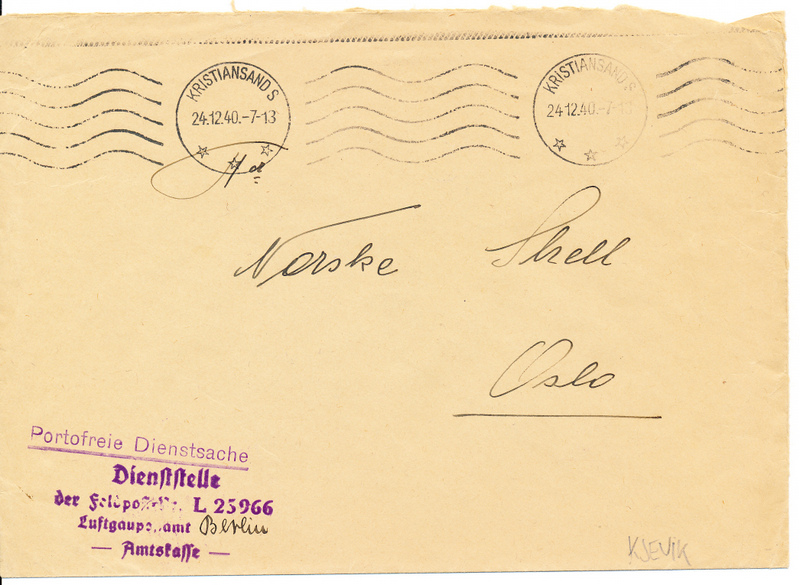 KRISTIANSAND S
24.12.40.-7-13
KRISTIANSAND S
24.12.40.-7-13
Norske Shell
Oslo
Portofreie Dienstsache
Dienststelle
der Feldpost-Nr. L 25966
Luftgaupostamt Berlin
— Amtskasse —
KJEVIK